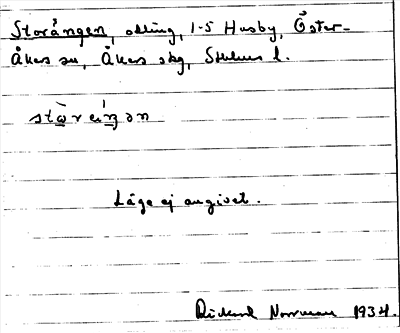 Storängen, odling, 1-5 Husby, Öster-
Åkers sn, Åkers skg, Sthlms l.
stɷ̀r ɛ́ŋən
Läge ej angivet.
Rickard Norrman 1934.